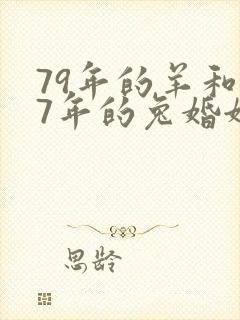 79年的羊和
7年的兔婚
思龄